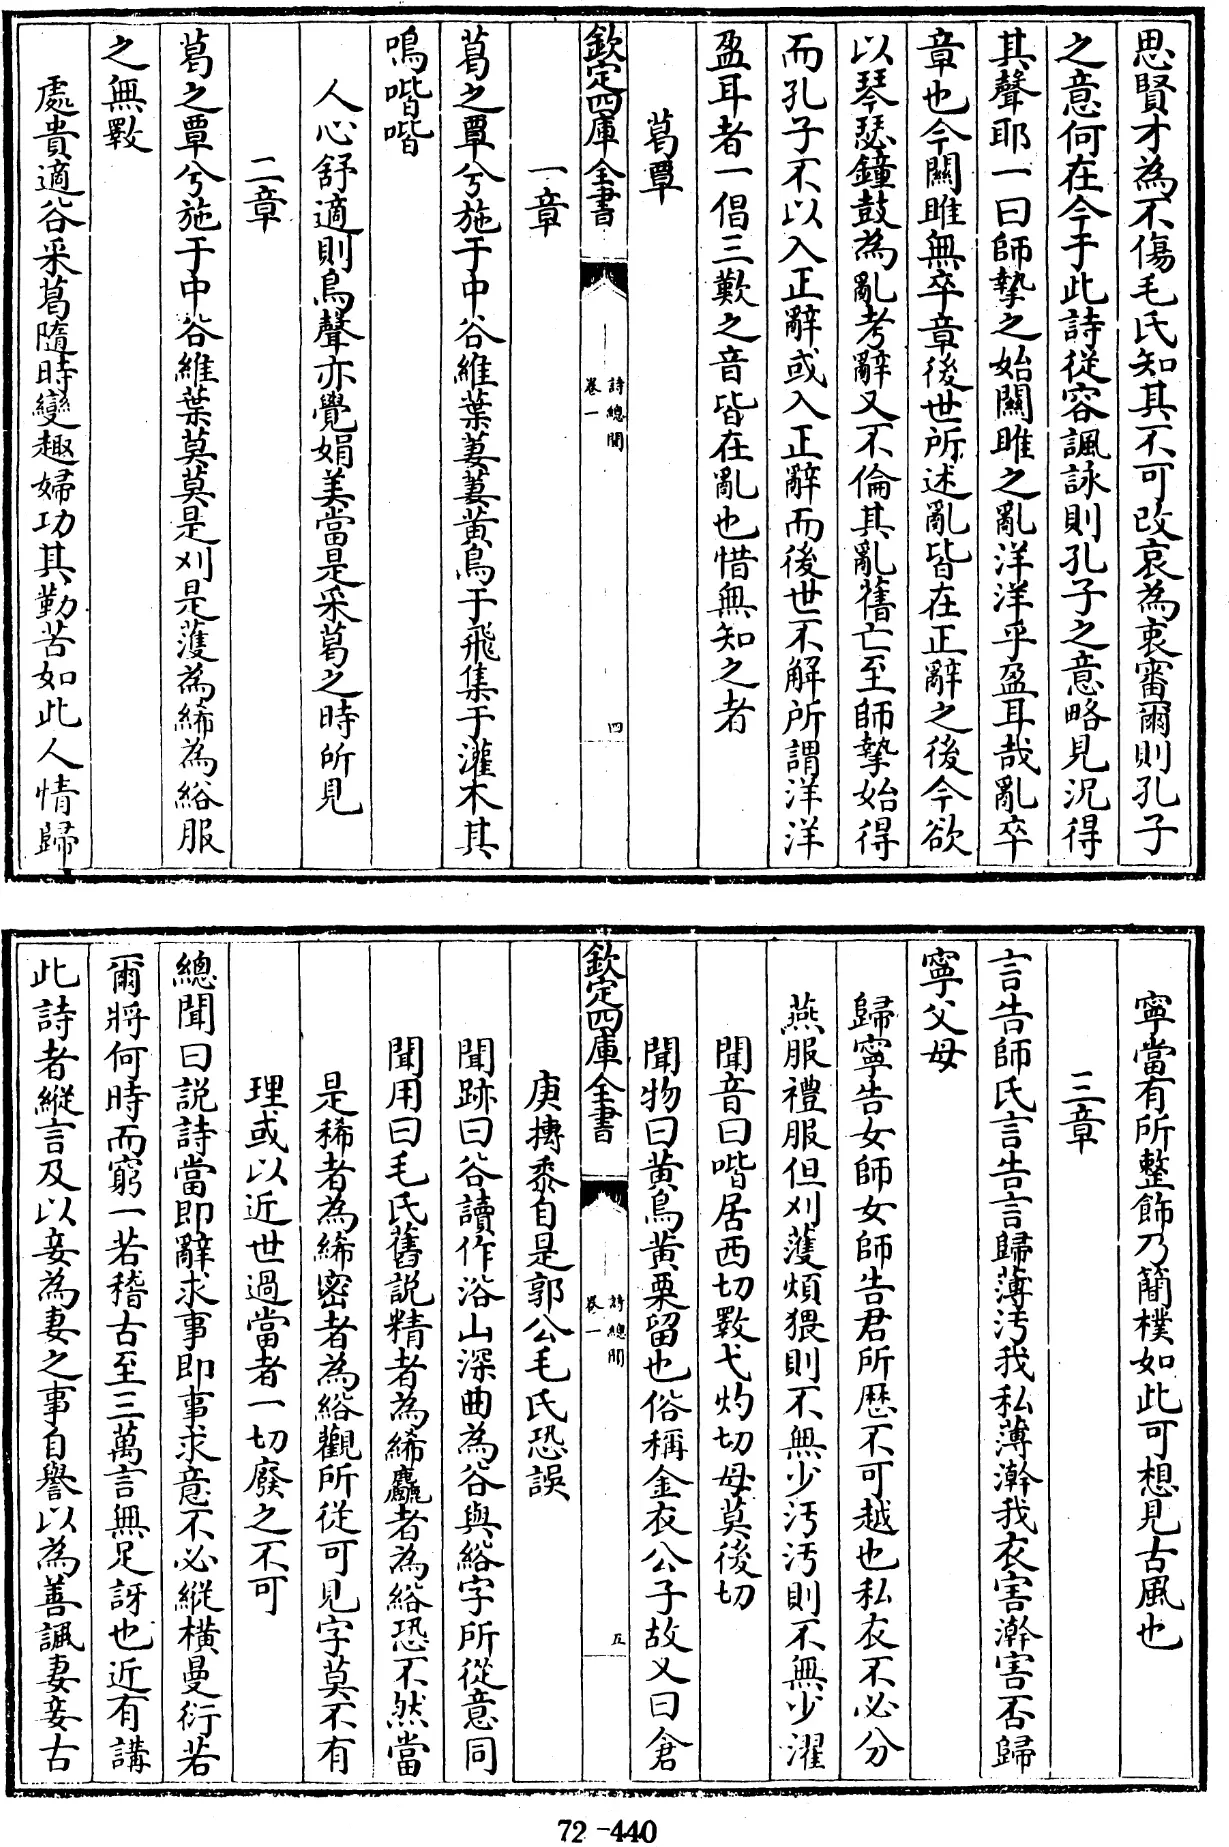 思賢才為不傷毛氏知其不可改哀為衷審爾則孔子
之意何在今于此詩從容諷詠則孔子之意略見況得
其聲耶一曰師摯之始關雎之亂洋洋乎盈耳哉亂卒
章也今關雎無卒章後世所述亂皆在正辭之後今欲
以琴瑟鐘鼓為亂考辭又不倫其亂舊亡至師摯始得
而孔子不以入正辭或入正辭而後世不解所謂洋洋
盈耳者一倡三歎之音皆在亂也惜無知之者
葛覃
欽定四庫全書
詩總聞
卷一
四
一章
葛之覃兮施于中谷維葉萋萋黄鳥于飛集于灌木其
鳴喈喈
人心舒適則鳥聲亦覺娟美當是采葛之時所見
二章
葛之覃兮施于中谷維葉莫莫是刈是濩為絺為綌服
之無斁
處貴適谷采葛隨時變趣婦功其勤苦如此人情歸
寧當有所整飾乃簡樸如此可想見古風也
三章
言告師氏言告言歸薄汚我私薄澣我衣害澣害否歸
寧父母
歸寧告女師女師告君所歴不可越也私衣不必分
燕服禮服但刈濩煩猥則不無少汚汚則不無少濯
聞音曰喈居西切斁弋灼切母莫後切
聞物曰黄鳥黄栗留也俗稱金衣公子故又曰倉
欽定四庫全書
詩總聞
卷一
五
庚摶黍自是郭公毛氏恐誤
聞跡曰谷讀作浴山深曲為谷與綌字所從意同
聞用曰毛氏舊説精者為絺麤者為綌恐不然當
是稀者為絺密者為綌觀所從可見字莫不有
理或以近世過當者一切廢之不可
總聞曰説詩當即辭求事即事求意不必縱横曼衍若
爾將何時而窮一若稽古至三萬言無足訝也近有講
此詩者縱言及以妾為妻之事自譽以為善諷妻妾古
72-440